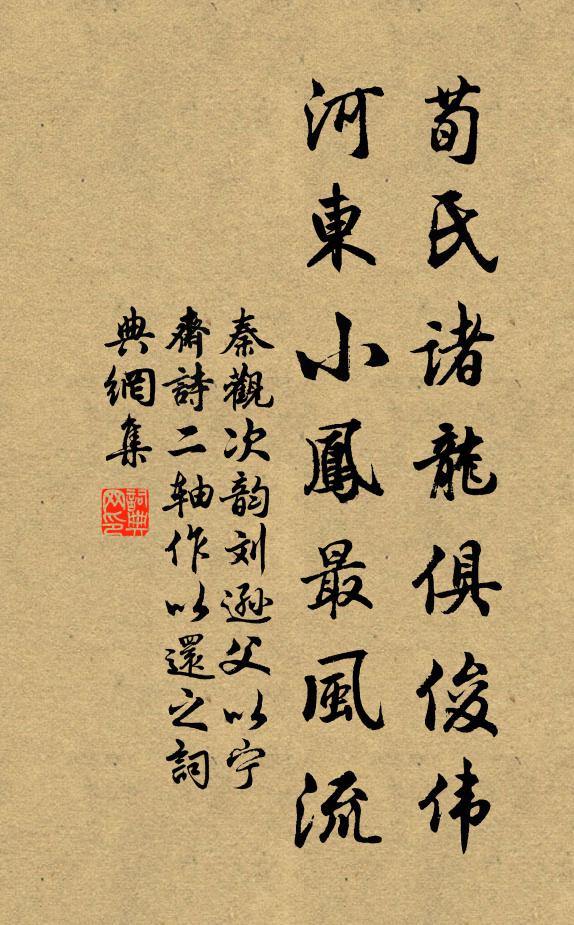 荀氏诸龍俱俊伟
河東小鳳最風流
秦觀次韵刘逊父以宁
齋詩二轴作以還之詞
典網集
詞典
网印